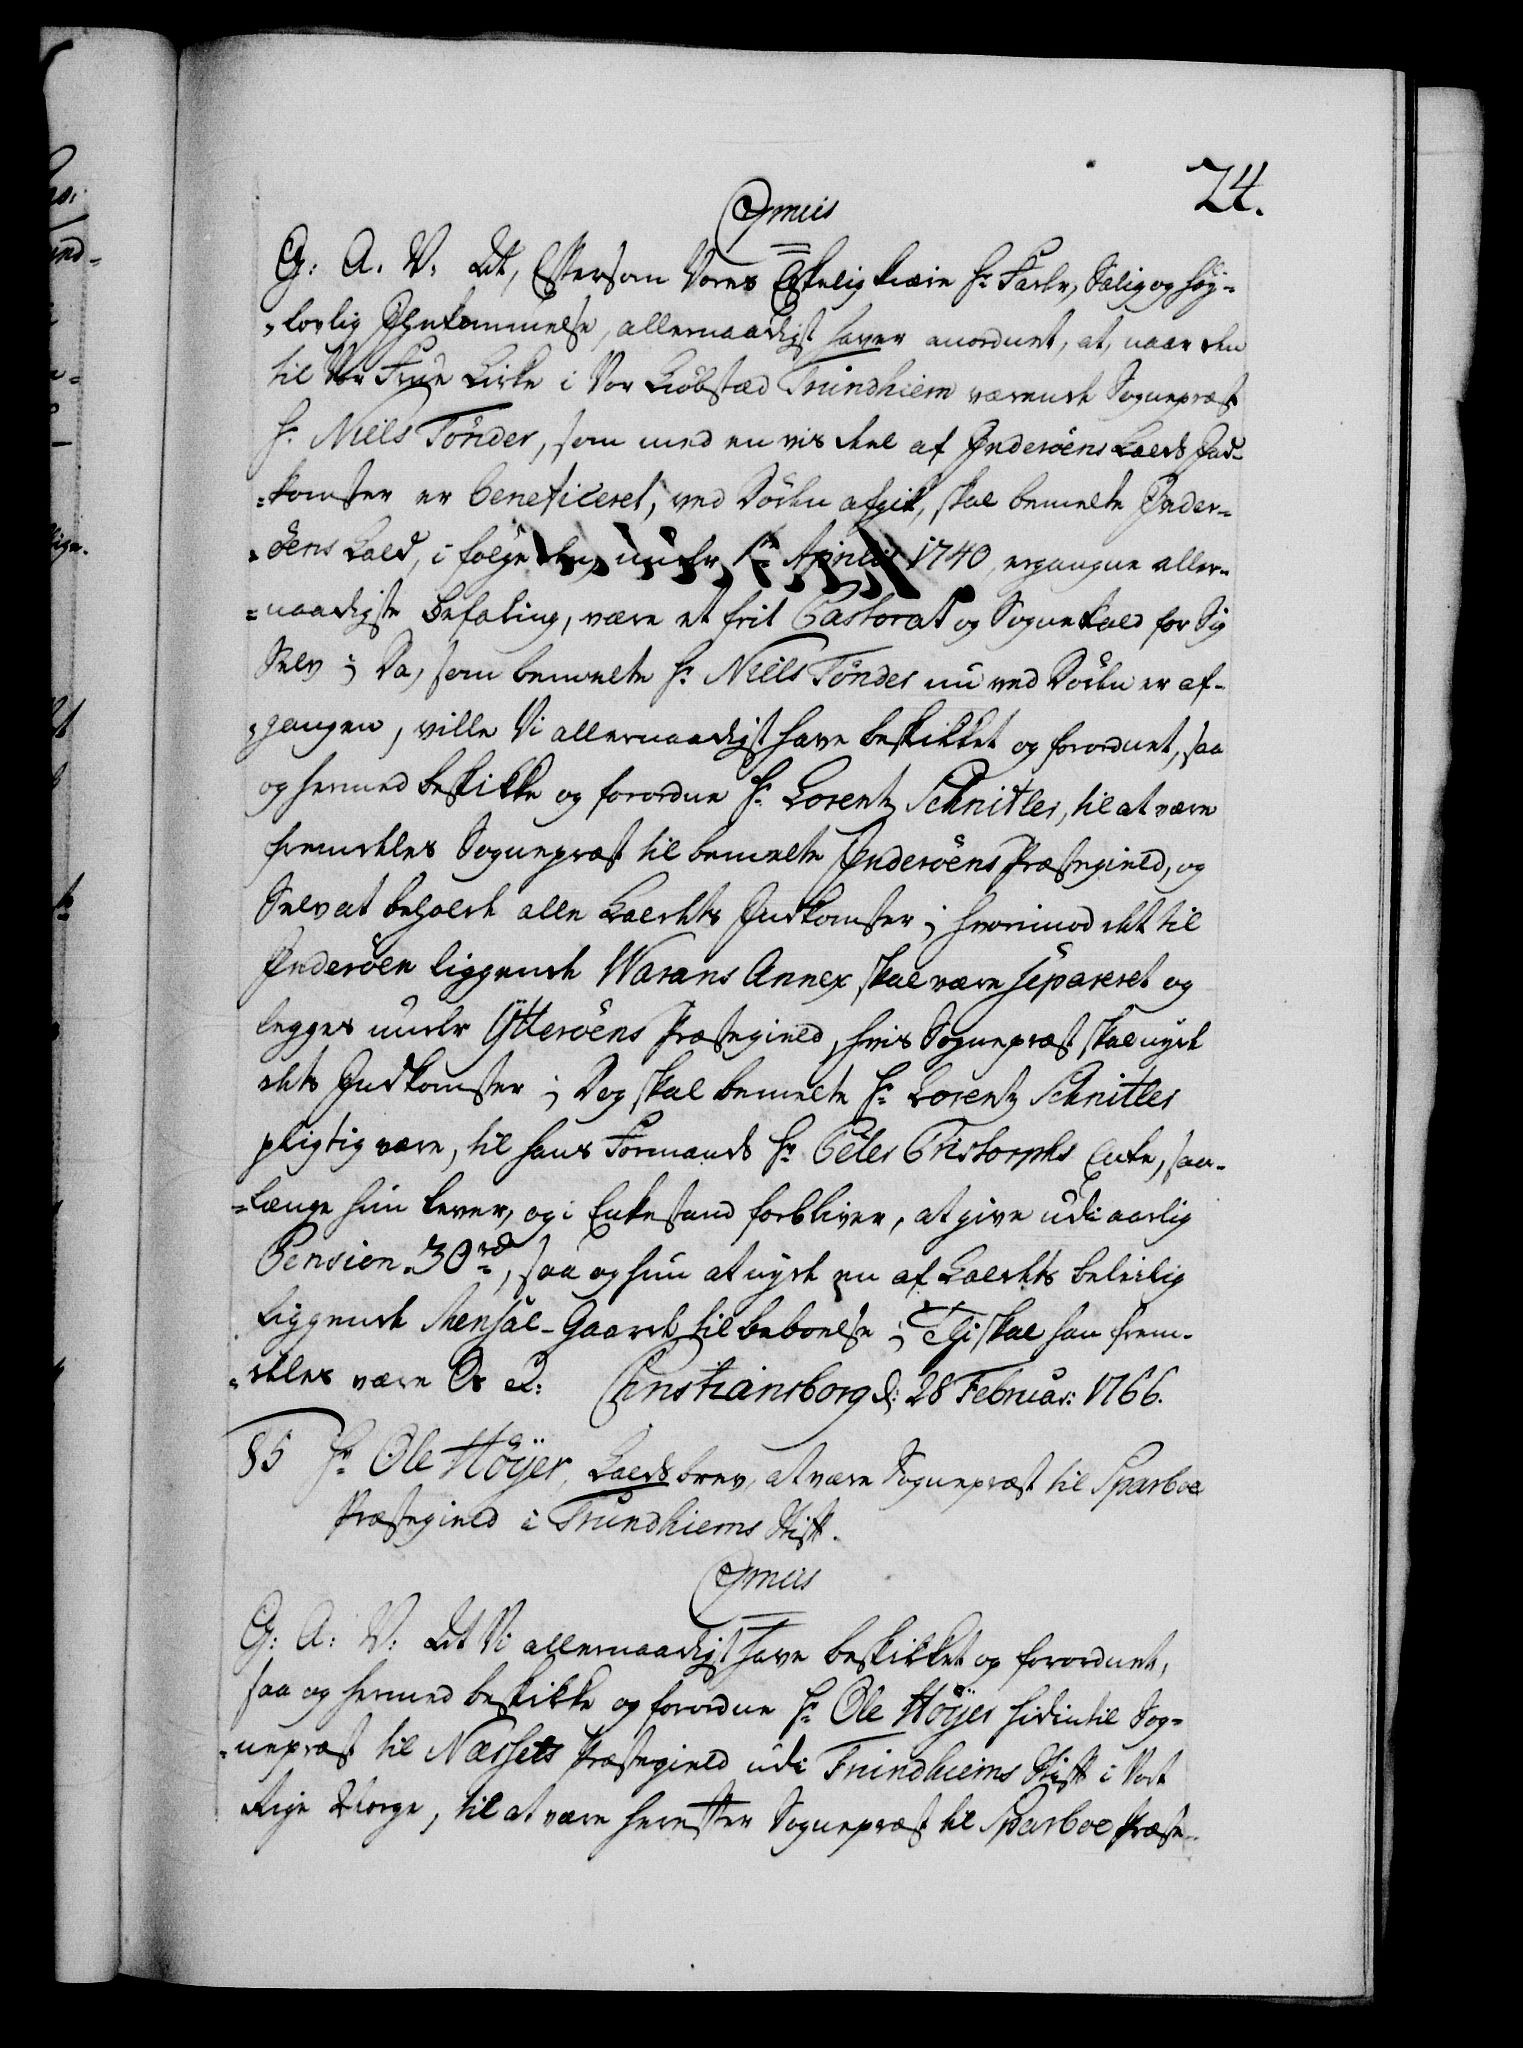 24.
Qmiis
G: A. V: Wt, Eftersom Vores Elskelig kiære Hr. Fader, Salig og Høy-
-lovlig Ihukommelse, allernaadigst haver anordnet, at, naar den
til Vor Frue Kirke i Vor Kiøbstæd Trundhiem værende Sognepræst
Hr. Niels Tønder, som med en vis deel af Inderöens Kalds Ind-
-komster er beneficeret, ved Döden afgik, skal bemelte Inder-
-öens Kald, i følge den, under 1te Aprilis 1740, ergangne aller-
-naadigste Befaling, være et frit Pastorat og Sognekald for Sig
Selv; Da, som bemelte Hr. Niels Tönder nu ved Döden er af-
-gangen, ville Vi allernaadigst have beskikket og forordnet, saa
og hermed beskikke og forordne Hr. Lorentz Schnitler, til at være
fremdeles Sognepræst til bemelte Inderöens Præstegield, og
Selv at beholde alle Kaldets Indkomster; hvorimod det til
Inderöen liggende Warans Annex skal være separeret og
legges under Ytteröens Præstegield, hvis Sognepræst skal nyde
dets Indkomster; Dog skal bemelte Hr. Lorentz Schnitler
pligtig være, til hans Formands Hr. Peter Tristorphs Enke, saa-
-længe hun lever, og i Enkestand forbliver, at give udi aarlig
Pension 30 rd, saa og hun at nyde en af Kaldets beleilig
liggende Mensal-Gaarde til beboelse; Thi skal han frem-
-deles være Os &: Christiansborg d: 28 Februar: 1766.
85 Hr. Ole Höyer, Kaldsbrev, at være Sognepræst til Sparboe
Præstegield i Trundhiems Stift.
Qmiis
G: A: V: Wt Vi allernaadigst have beskikket og forordnet,
saa og hermed beskikke og forordne Hr. Ole Höyer hidintil Sog-
-nepræst til Næssets Præstegield udi Trundhiems Stift i Vort
Rige Norge, til at være herefter Sognepræst til Sparboe Præste-